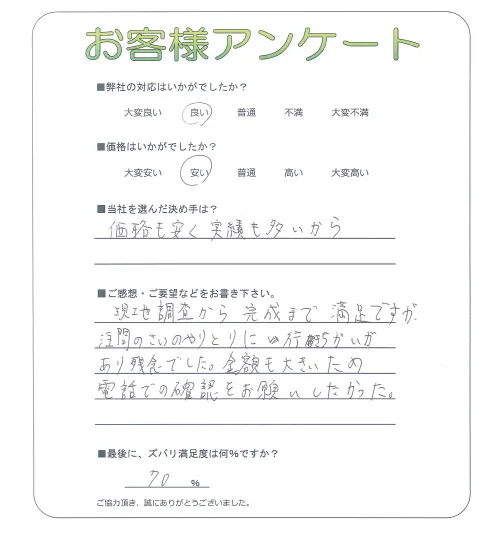 お客様アンケート
■弊社の対応はいかがでしたか？
大変良い 良い 普通 不満 大変不満
■価格はいかがでしたか？
大変安い 安い 普通 高い 大変高い
■当社を選んだ決め手は？
価格も安く実績も多いから
■ご感想・ご要望などをお書き下さい。
現地調査から完成まで満足ですが
注問のさいのやりとりに行きちがいが
あり残念でした。金額も大きいため
電話での確認をお願いしたかった。
■最後に、ズバリ満足度は何%ですか？
70 %
ご協力頂き、誠にありがとうございました。